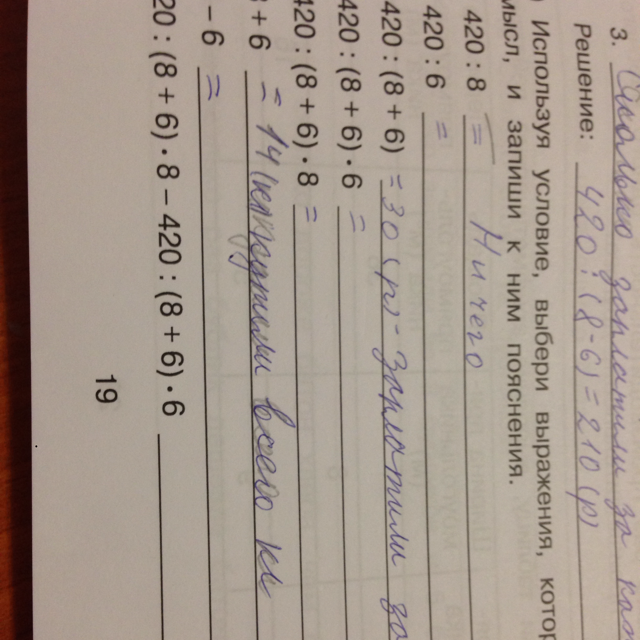 3. Сколько заплатили за
Решение: 420:(8-6)=210(р)
) Используя условие, выбери выражения, котор
мысл, и запиши к ним пояснения.
420 : 8 = Ничего
420 : 6 =
420 : (8 + 6) = 30 (р) - заплатили за
420 : (8 + 6) · 6 =
420 : (8 + 6) · 8 =
8 + 6 = 14 всего
- 6 =
20 : (8 + 6) · 8 – 420 : (8 + 6) · 6
19